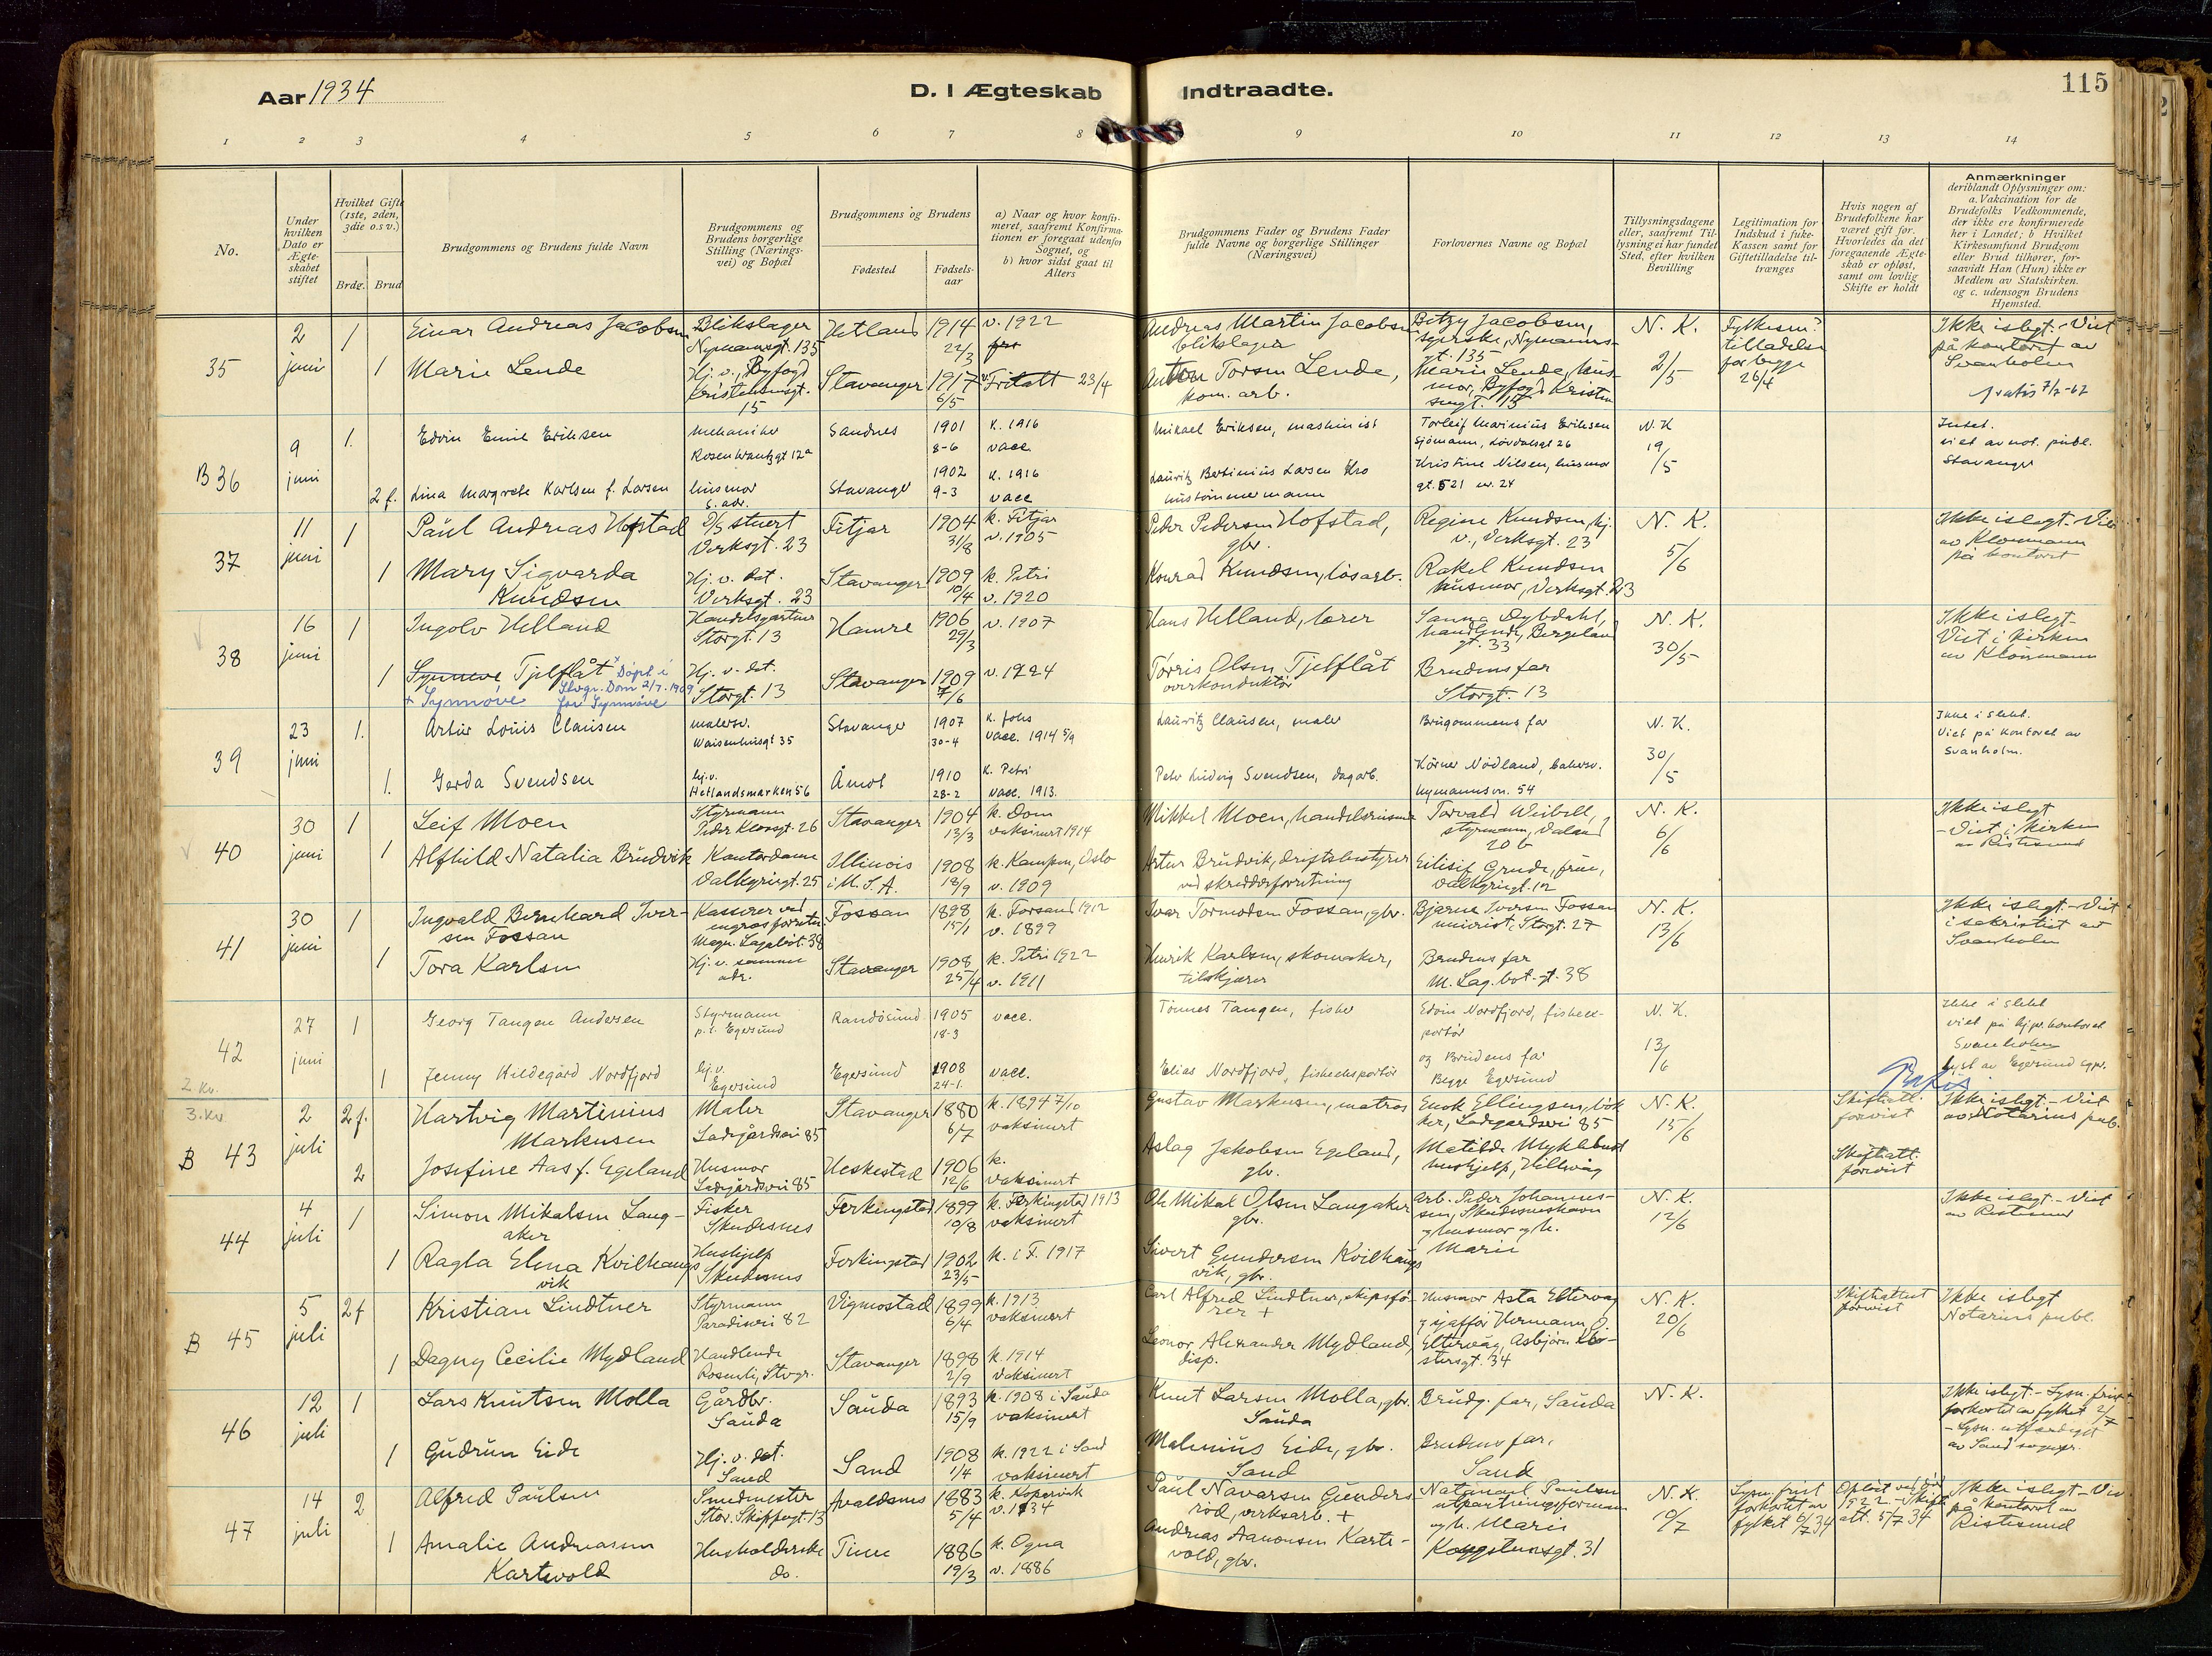 Aar 1934
D. I Ægteskab Indtraadte.
115
1 2 3 4 5 6 7 8 9 10 11 12 13 14
No.
Under hvilken Dato er Ægteskabet stiftet
Hvilket Gifte (1ste, 2den, 3die o.s v.)
Brdg. Brud
Brudgommens og Brudens fulde Navn
Brudgommens og Brudens borgerlige Stilling (Næringsvei) og Bopæl
Brudgommens og Brudens
Fødested
Fødselsaar
a) Naar og hvor konfirmeret, saafremt Konfirmationen er foregaat udenfor Sognet, og
b) hvor sidst gaat til Alters
Brudgommens Fader og Brudens Fader fulde Navne og borgerlige Stillinger (Næringsvei)
Forlovernes Navne og Bopæl
Tillysningsdagene eller, saafremt Tillysning ei har fundet Sted, efter hvilken Bevilling
Legitimation for Indskud i Enke-Kassen samt for Giftetilladelse tiltrænges
Hvis nogen af Brudefolkene har været gift før. Hvorledes da det foregaaende Ægteskab er opløst, samt om lovlig Skifte er holdt
Anmærkninger
deriblandt Oplysninger om: a. Vakcination for de Brudefolks Vedkommende, der ikke ere konfirmerede her i Landet; b Hvilket Kirkesamfund Brudgom eller Brud tilhører, forsaavidt Han (Hun) ikke er Medlem av Statskirken. og c. udensogn Brudens Hjemsted.
35 2 juni 1 Einar Andreas Jacobsen Blikslager Nymannsgt. 135 Hetland 1914 22/3 v. 1922 Andreas Martin Jacobsen blikslager Betzy Jacobsen, syerske, Nymannsgt. 135 N. K. 2/5 Fylkesm. tilladelse for begge 26/4 Ikke i slegt. - Viet på kontoret av Svanholm
1 Marie Lende Hj. v., Byfogd Kristensensgt. 15 Stavanger 1917 6/5 23/4 Anton Torsen Lende, kom. arb. Marie Lende, husmor, Byfogd Kristensensgt. 15 gratis 7/2-67
B 36 9 juni 1. Edvin Emil Eriksen mekaniker Rosenkrantzgt 12a Sandnes 1901 8-6 k. 1916 vacc. Mikael Eriksen, maskinist Torleif Marinius Eriksen sjömann, Lövdalsgt 26 N. K 19/5 viet av not. publ. Stavanger
2 f. Lina Margrete Karlsen f. Larsen husmor s. adr. Stavanger 1902 9-3 k. 1916 vacc Lauritz Bertinius Larsen Kro hustömmermann Kristine Nilsen, husmor gt. 521 nr. 24
37 11 juni 1 Paul Andreas Hofstad D/S stuert Verksgt. 23 Fitjar 1904 31/8 k. Fitjar v. 1905 Peder Pedersen Hofstad, gbr. Regine Knudsen, hj. v., Verksgt. 23 N. K. 5/6 Ikke i slegt. Viet av Klonmann på kontoret
1 Mary Sigvarda Knudsen Hj. v. dat. Verksgt. 23 Stavanger 1909 10/4 k. Petri v. 1920 Konrad Knudsen, løsarb. Rakel Knudsen husmor, Verksgt. 23
38 16 juni 1 Ingolv Helland Handelsgartner Storgt. 13 Hamre 1906 29/3 v. 1907 Hans Helland, lærer Sanna Dybdahl, handlende, Bergelandgt. 33 N. K. 30/5 Ikke i slegt - Viet i kirken av Klonmann
1 Synneve Tjelflåt + Synnöve Döpt i Stvgr. Dom 2/7. 1909 for Synnöve Hj. v. dat. Storgt. 13 Stavanger 1909 7/6 v. 1924 Torris Olsen Tjelflåt overkonduktør Brudens far Storgt. 13
39 23 juni 1. Artur Louis Clausen malersv. Waisenhusgt 35 Stavanger 1907 30-4 k. Johs vacc. 1914 5/9 Lauritz Clausen, maler Brugommens far N. K. 30/5 Ikke i slekt. Viet på kontoret av Svanholm.
1. Gerda Svendsen hj. v. Hetlandsmarken 56 Åmot 1910 28-2 k. Petri vacc. 1913. Peter Ludvig Svendsen, dagarb. Körner Nödland, bakersv. Nymannsvn. 54
40 30 juni 1 Leif Moen Styrmann Peder Klowsgt. 26 Stavanger 1904 13/3 k. Dom vaksinert 1914 Mikkel Moen, handelsreisende Torvald Weibell, styrmann, Daland 20 b N. K. 6/6 Ikke i slegt - Viet i kirken av Ristesund
1 Alfhild Natalia Brudvik Kontordame Valkyrigt. 25 Illinois i U. S. A. 1908 18/9 k. Kampen, Oslo v. 1909 Artur Brudvik, driftsbestyrer ved skredderforretning Eilisif Grude, frue, Valkyrigt. 12
41 30 juni 1 Ingvald Bernhard Iversen Fossan Kasserer ved engrosforretn. Magn. Lagabøt. 38 Fossan 1898 15/1 k. Forsand 1912 v. 1899 Ivar Tormodsen Fossan, gbr. Bjarne Iversen Fossan Storgt. 27 N. K. 13/6 Ikke i slegt. - Viet i sakristiet av Svanholm
1 Tora Karlsen Hj. v. samme adr. Stavanger 1908 25/4 k. Petri 1922 v. 1911 Henrik Karlsen, skomaker, tilskjærer Brudens far M. Lag. bot-gt. 38
42 27 juni 1 Georg Tangen Andersen Styrmann p. t. Egersund Randösund 1905 18-3 vacc. Tönnes Tangen, fisker Edvin Nordfjord, fiskeexportör N. K. 13/6 Ikke i slekt viet på hjpr. kontoret Svanholm lyst av Egersund sgpr.
1 Jenny Hildegard Nordfjord hj. v. Egersund Egersund 1908 24-1. vacc. Elias Nordfjord, fiskeeksportör og Brudens far Begge Egersund
2. kv.
3. kv
B 43 2 juli 2 f. Hartvig Martinius Markusen Maler Ladegårdsvei 85 Stavanger 1880 6/7 k. 1894 7/10 vaksinert Gustav Markusen, matros Enok Ellingsen, bökker, Ladegardsvei 85 N. K. 15/6 Skifteatt. forvist Ikke i slegt. - Viet av Notarius pub.
2 Josefine Aas f. Egeland Husmor Ladegårdsvei 85 Heskestad 1906 12/6 k. vaksinert Aslag Jakobsen Egeland, gbr. Matilde Myklebust hushjelp, Hillevåg Skifteatt. forvist
44 4 juli 1 Simon Mikalsen Langaker Fisker Skudesnes Ferkingstad 1899 10/8 k. Ferkingstad 1913 vaksinert Ole Mikal Olsen Langaker gbr. arb. Peder Johannessen, Skudesneshavn og husmor og h. Marie N. K. 12/6 Ikke i slegt. - Viet av Ristesund
1 Ragla Elena Kvilhaugsvik Hushjelp Skudesnes Ferkingstad 1902 23/5 k. i F. 1917 Sivert Gundersen Kvilhaugsvik, gbr.
B 45 5 juli 2 f Kristian Lindtner Styrmann Paradisvei 82 Vigmostad 1899 6/4 k. 1913 vaksinert Carl Alfred Lindtner, skipsförer + Husmor Asta Eltervaag og sjaffør Hermann O. Eltervåg, Asbjørn Klostersgt. 34 N. K. 20/6 Skifteattest forvist Ikke i slegt Notarius publ.
1 Dagny Cecilie Mydland Handlende Rosenli, Stvgr. Stavanger 1898 2/9 k. 1914 vaksinert Leonor Alexander Mydland, disp.
46 12 juli 1 Lars Knutsen Molla Gårdbr. Sauda Sauda 1893 15/9 k. 1908 i Sauda vaksinert Knut Larsen Molla, gbr. Sauda Brudg. far, Sauda N. K. Ikke i slegt. - Lysn. frist forkortet av fylket 2/7 - Lysn. utferdiget av Sand sognepr.
1 Gudrun Eide Hj. v. dat. Sand Sand 1908 1/4 k. 1922 i Sand vaksinert Malenius Eide, gbr. Sand Brudens far, Sand
47 14 juli 2 Alfred Paulsen Smedmester Stor. Skippergt. 13 Avaldsnes 1883 5/4 k. Kopervik v. 1934 Paul Navarsen Gundersrød, verksarb. + Natanael Paulsen utparteringsformann og h. Marie N. K. 10/7 Lysn. frist forkortet av fylket 6/7 34 Opløst ved död 1922 - Skifteatt. 5/7 34 Ikke i slegt - Viet på kontoret av Ristesund
1 Amalie Andreasen Kartevold Husholderske do. Time 1886 19/3 k. Ogna v. 1886 Andreas Aanonsen Kartevold, gbr. Kongstensgt. 31